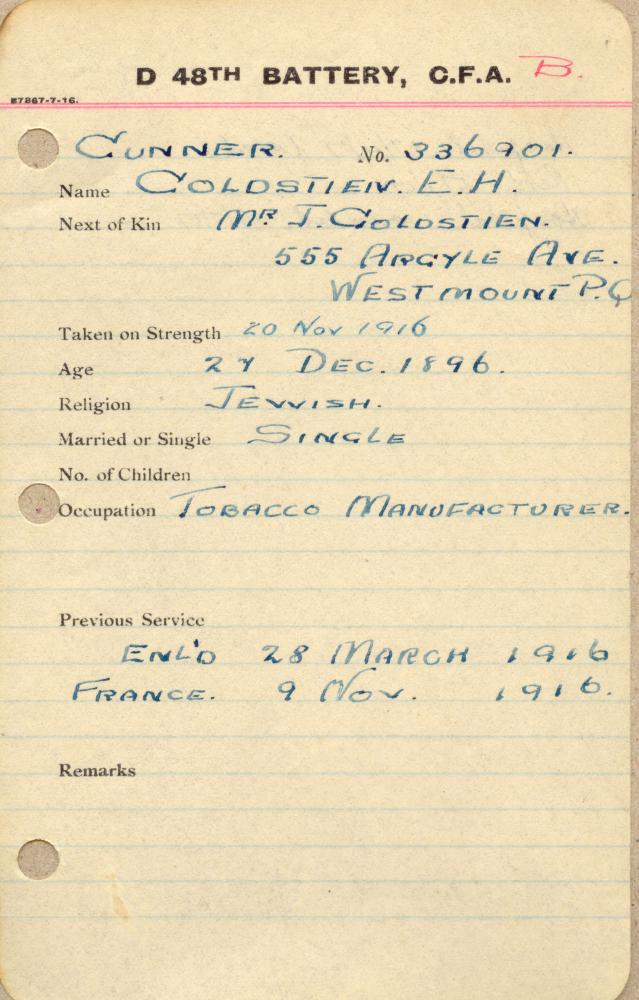 D 48TH BATTERY, C.F.A. B.
B7867-7-16.
GUNNER. No. 336901.
Name GOLDSTIEN. E.H.
Next of Kin MR J. GOLDSTIEN.
555 ARGYLE AVE.
WESTMOUNT P.Q
Taken on Strength 20 Nov 1916
Age 27 DEC. 1896.
Religion JEWISH.
Married or Single SINGLE
No. of Children
Occupation TOBACCO MANUFACTURER.
Previous Service
ENL'D 28 MARCH 1916
FRANCE. 9 NOV. 1916.
Remarks